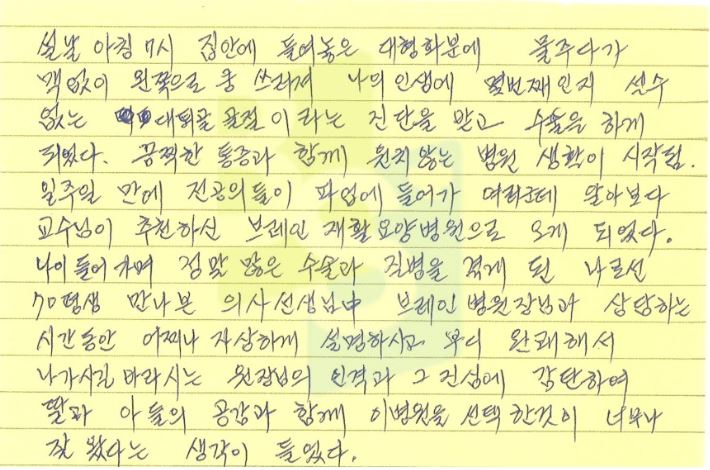 설날 아침 7시 집안에 들여놓은 대형화분에 물주다가
맥없이 왼쪽으로 쿵 쓰러져 나의 인생에 몇번째인지 셀수
없는 대퇴골 골절이라는 진단을 받고 수술을 하게
되었다. 끔찍한 통증과 함께 원치않는 병원 생활이 시작됨.
일주일 만에 전공의들이 파업에 들어가 여러군데 알아보다
교수님이 추천하신 브레인 재활요양병원으로 오게 되었다.
나이 들어가며 정말 많은 수술과 질병을 겪게 된 나로선
70평생 만나본 의사선생님中 브레인병원장님과 상담하는
시간동안 어찌나 자상하게 설명하시고 부디 완쾌해서
나가시길 바라시는 원장님의 인격과 그 진심에 감탄하여
딸과 아들의 공감과 함께 이병원을 선택한것이 너무나
잘 왔다는 생각이 들었다.